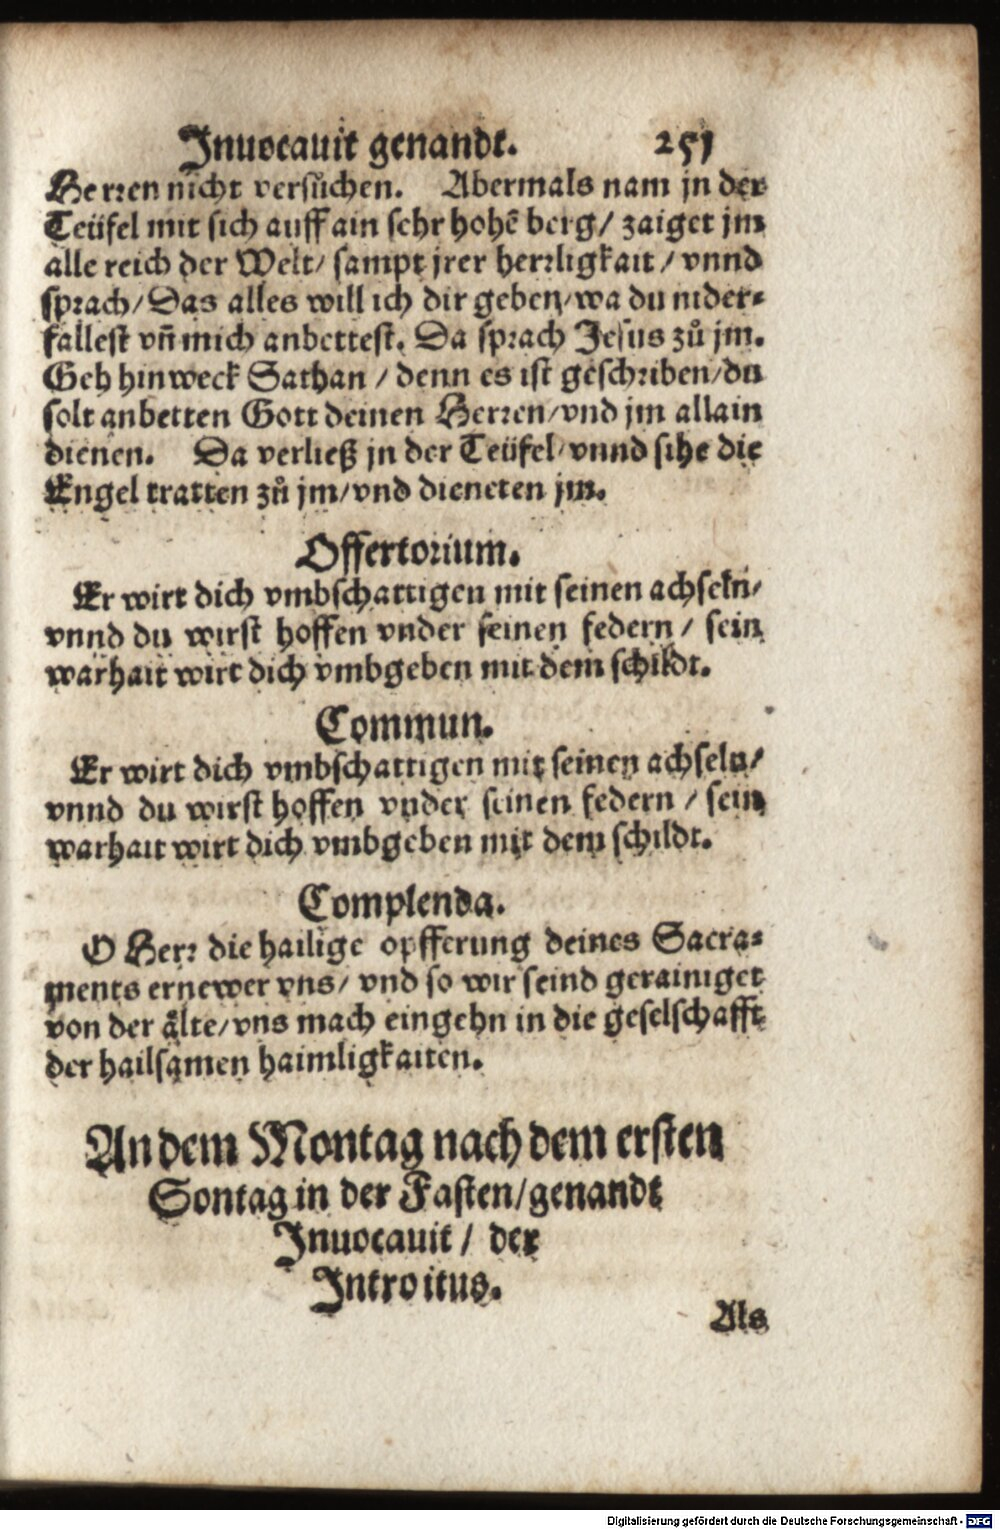 Inuocauit genandt. 251
Herren nicht versůchen. Abermals nam jn der
Teüfel mit sich auff ain sehr hohẽ berg/ zaiget jm
alle reich der Welt/ sampt jrer herrligkait/ vnnd
sprach/ Das alles will ich dir geben/ wa du nider-
fallest vñ mich anbettest. Da sprach Jesus zů jm.
Geh hinweck Sathan/ denn es ist geschriben/ du
solt anbetten Gott deinen Herren/ vnd jm allain
dienen. Da verließ jn der Teüfel/ vnnd sihe die
Engel tratten zů jm/ vnd dieneten jm.
Offertorium.
Er wirt dich vmbschattigen mit seinen achseln/
vnnd du wirst hoffen vnder seinen federn/ sein
warhait wirt dich vmbgeben mit dem schildt.
Commun.
Er wirt dich vmbschattigen mit seinen achseln/
vnnd du wirst hoffen vnder seinen federn/ sein
warhait wirt dich vmbgeben mit dem schildt.
Complenda.
O Herr die hailige opfferung deines Sacra-
ments ernewer vns/ vnd so wir seind gerainiget
von der älte/ vns mach eingehn in die geselschafft
der hailsamen haimligkaiten.
An dem Montag nach dem ersten
Sontag in der Fasten/ genandt
Inuocauit/ der
Introitus.
Als
Digitalisierung gefördert durch die Deutsche Forschungsgemeinschaft - DFG